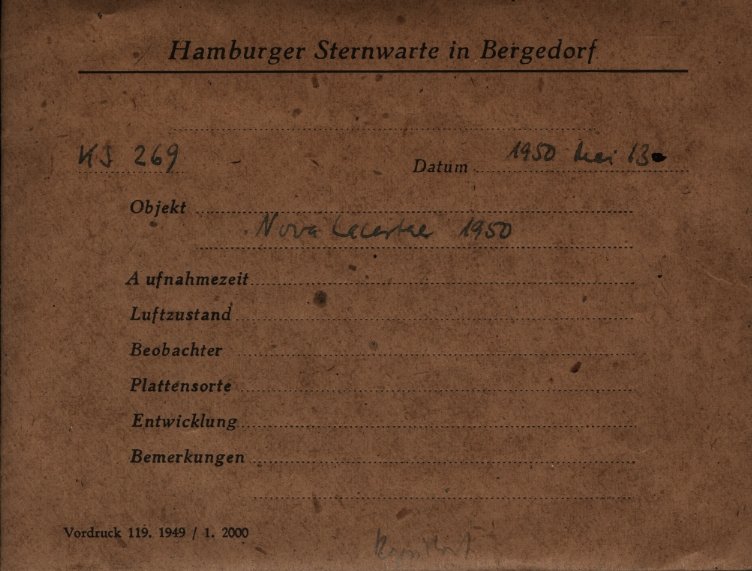 Hamburger Sternwarte in Bergedorf
KS 269
Datum 1950 Mai 13
Objekt
Nova Lacertae 1950
Aufnahmezeit
Luftzustand
Beobachter
Plattensorte
Entwicklung
Bemerkungen
Vordruck 119. 1949 / 1. 2000